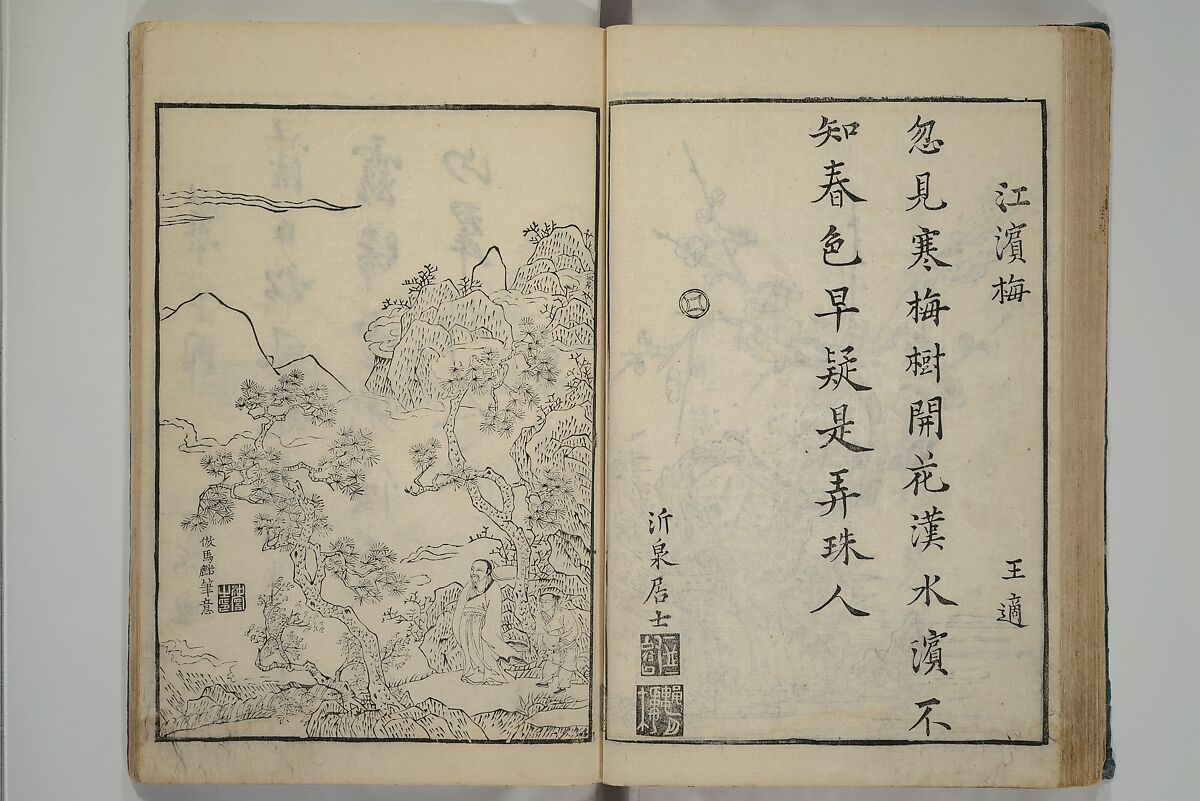 江濱梅
王適
忽見寒梅樹開花漢水濱不
知春色早疑是弄珠人
沂泉居士
倣馬麟筆意